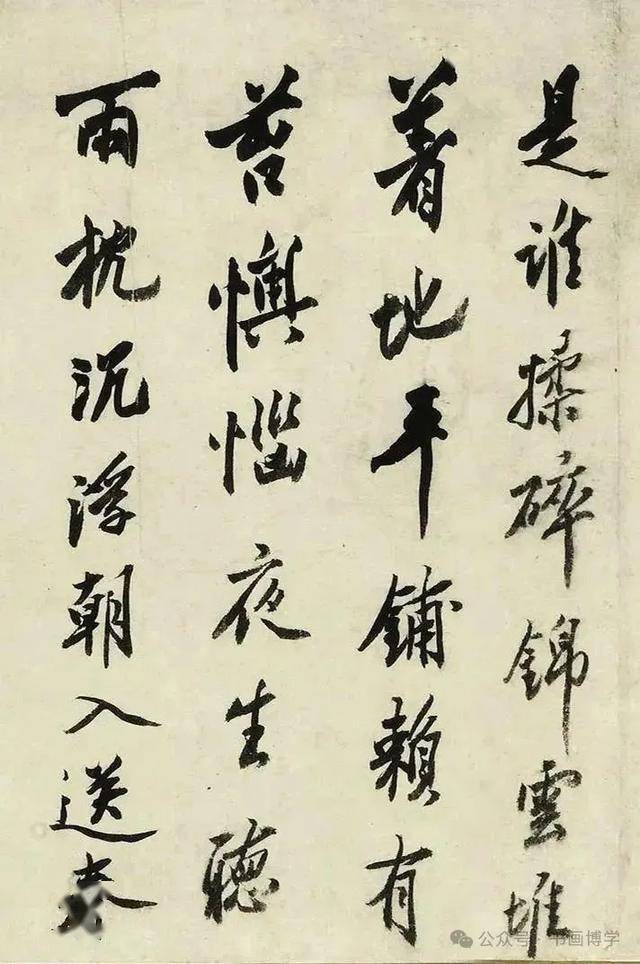 是誰揉碎錦雲堆
着地平鋪賴有
苔懊惱夜生聽
雨枕沉浮朝入送春
公众号 · 书画博学